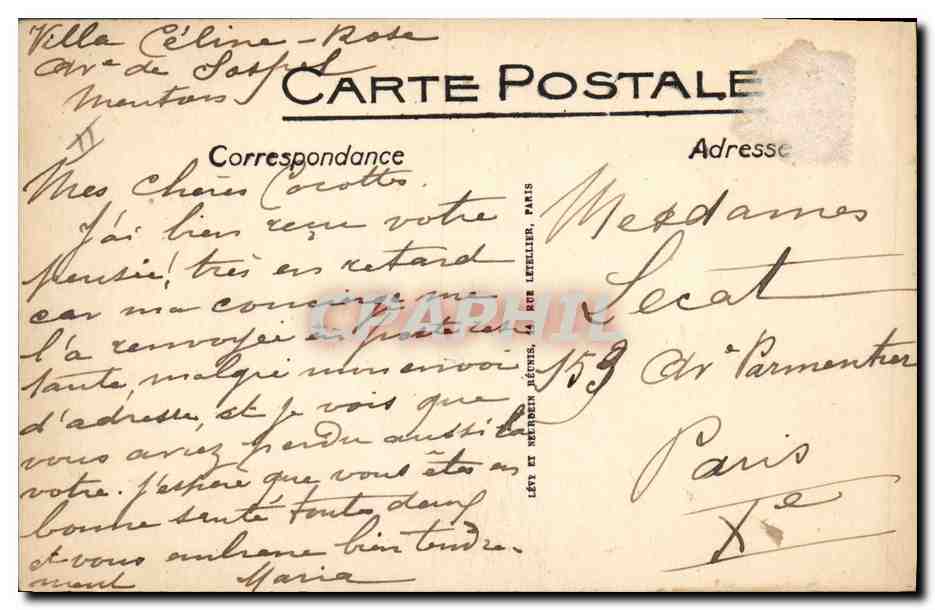 Villa Céline-Rose
Ave de Sospel
Menton
CARTE POSTALE
Correspondance
Adresse
Mes chères Cocottes.
J'ai bien reçu votre
pensée! très en retard
car ma concierge me
l'a renvoyée en poste res
tante, malgré mon envoi
d'adresse, et je vois que
vous avez perdu aussi la
votre. J'espère que vous êtes en
bonne santé toutes deux
et vous embrasse bien tendre-
ment Maria
LÉVY ET NEURDEIN RÉUNIS, 44 RUE LETELLIER, PARIS
Mesdames
Lecat
153 Ave Parmentier
Paris
Xe
CPAPHIL